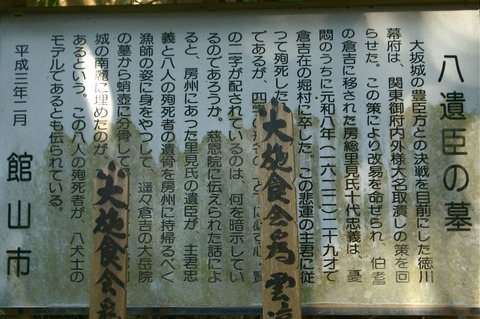 八遺臣の墓
大坂城の豊臣方との決戦を目前にした徳川
幕府は、関東御府内外様大名取潰しの策を回
らせた。この策により改易を命ぜられ、伯耆
の倉吉に移された房総里見氏十代忠義は、憂
悶のうちに元和八年(一六二二)二十九才で
倉吉在の堀村に卒した。この悲運の主君に従
って殉死した
であるが、四字
の二字が配されているのは、何を暗示してい
るのであろうか。慈恩院に伝えられた話によ
ると、房州にあった里見氏の遺臣が、主君忠
義と八人の殉死者の遺骨を房州に持帰るべく
漁師の姿に身をやつして、遥々倉吉の大岳院
の墓から蛸壺に分骨して
城の南麓に埋めたのが
あるという。この八人の殉死者が、八犬士の
モデルであるとも伝られている。
平成三年二月
館山市
大施食会為
大施食会為